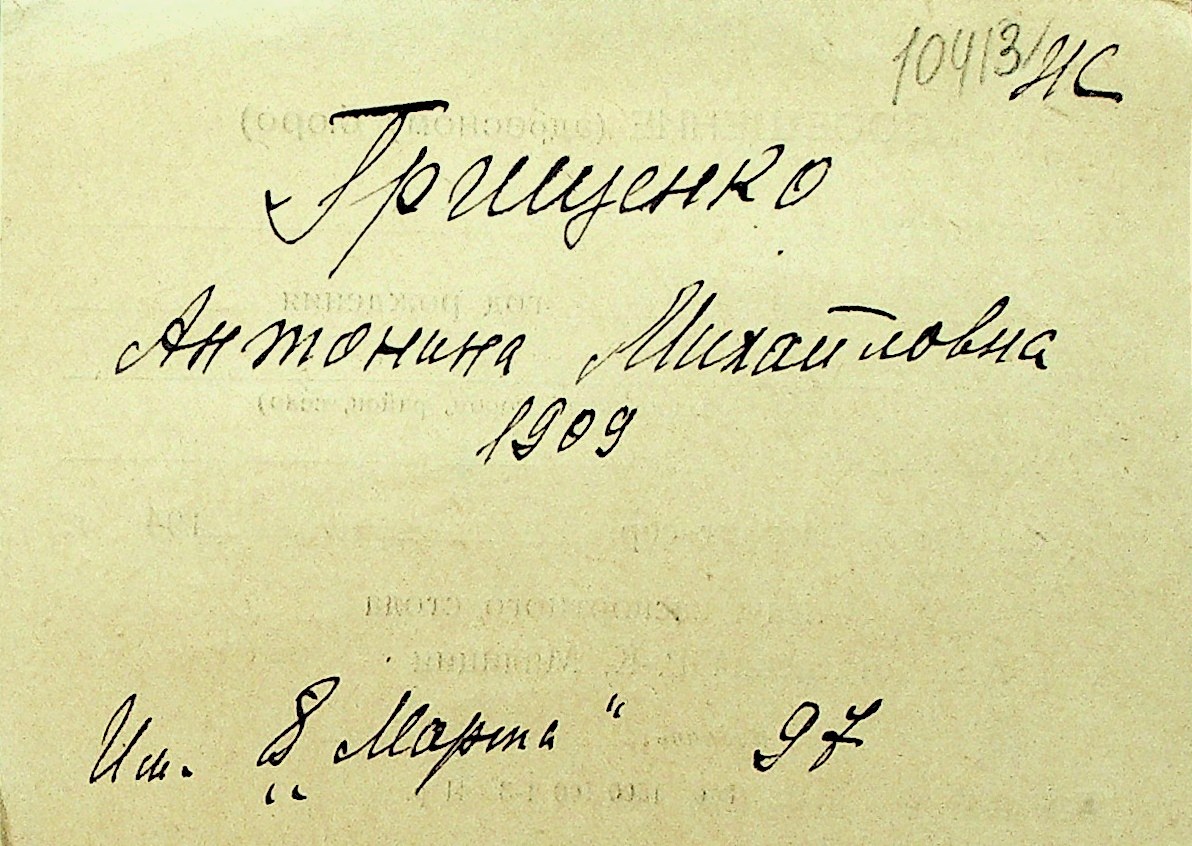 10413/НС
Грищенко
Антонина Михайловна
1909
Им. „8 Марта“ 97